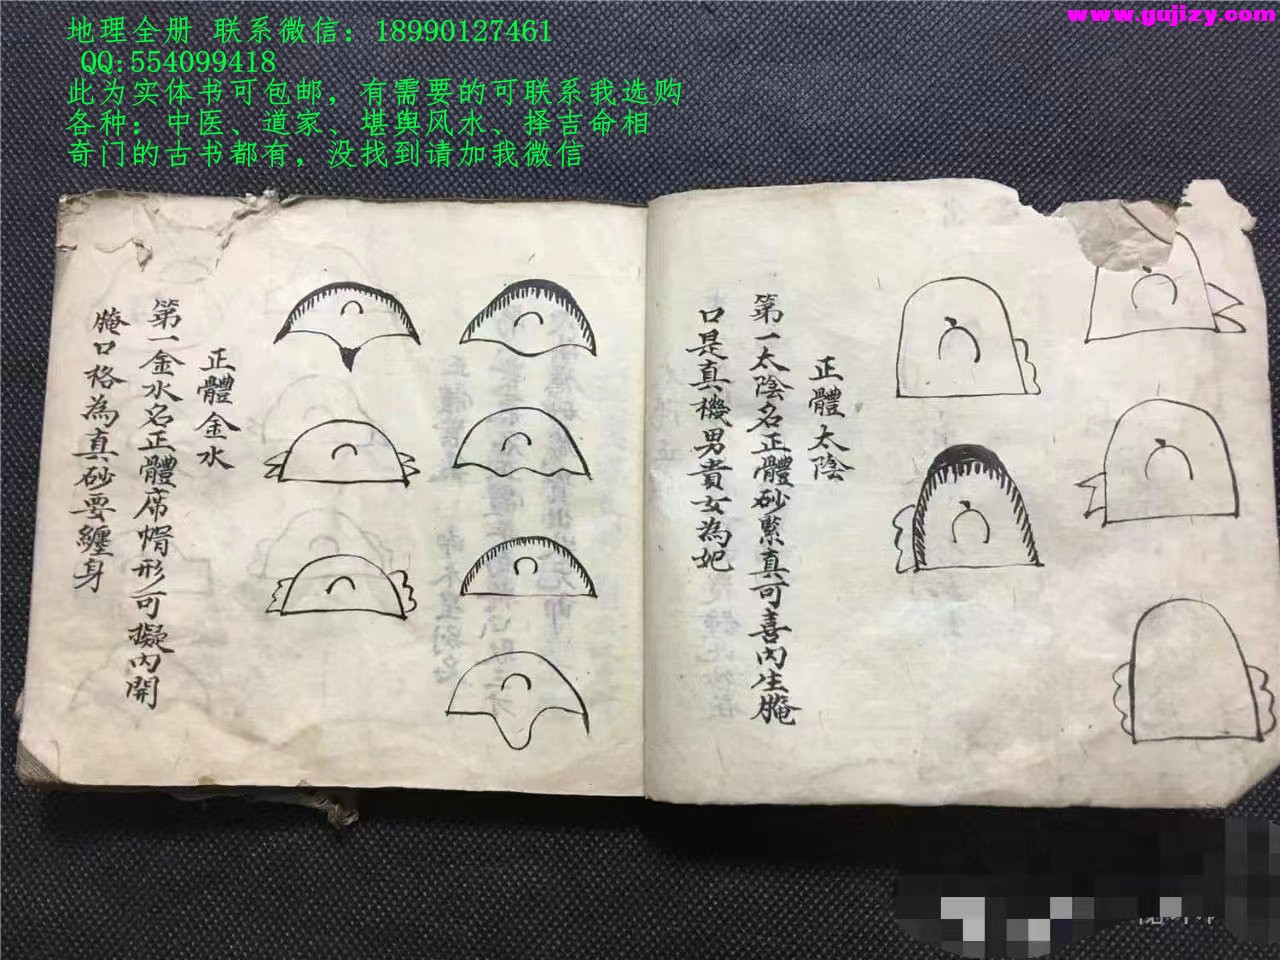 地理全册 联系微信：18990127461
QQ:554099418
此为实体书可包邮，有需要的可联系我选购
各种：中医、道家、堪舆风水、择吉命相
奇门的古书都有，没找到请加我微信
www.gujizy.com
正體太陰
第一太陰名正體砂緊真可喜內生腌
口是真機男貴女為妃
正體金水
第一金水名正體席帽形可擬內開
腌口格為真砂要纏身